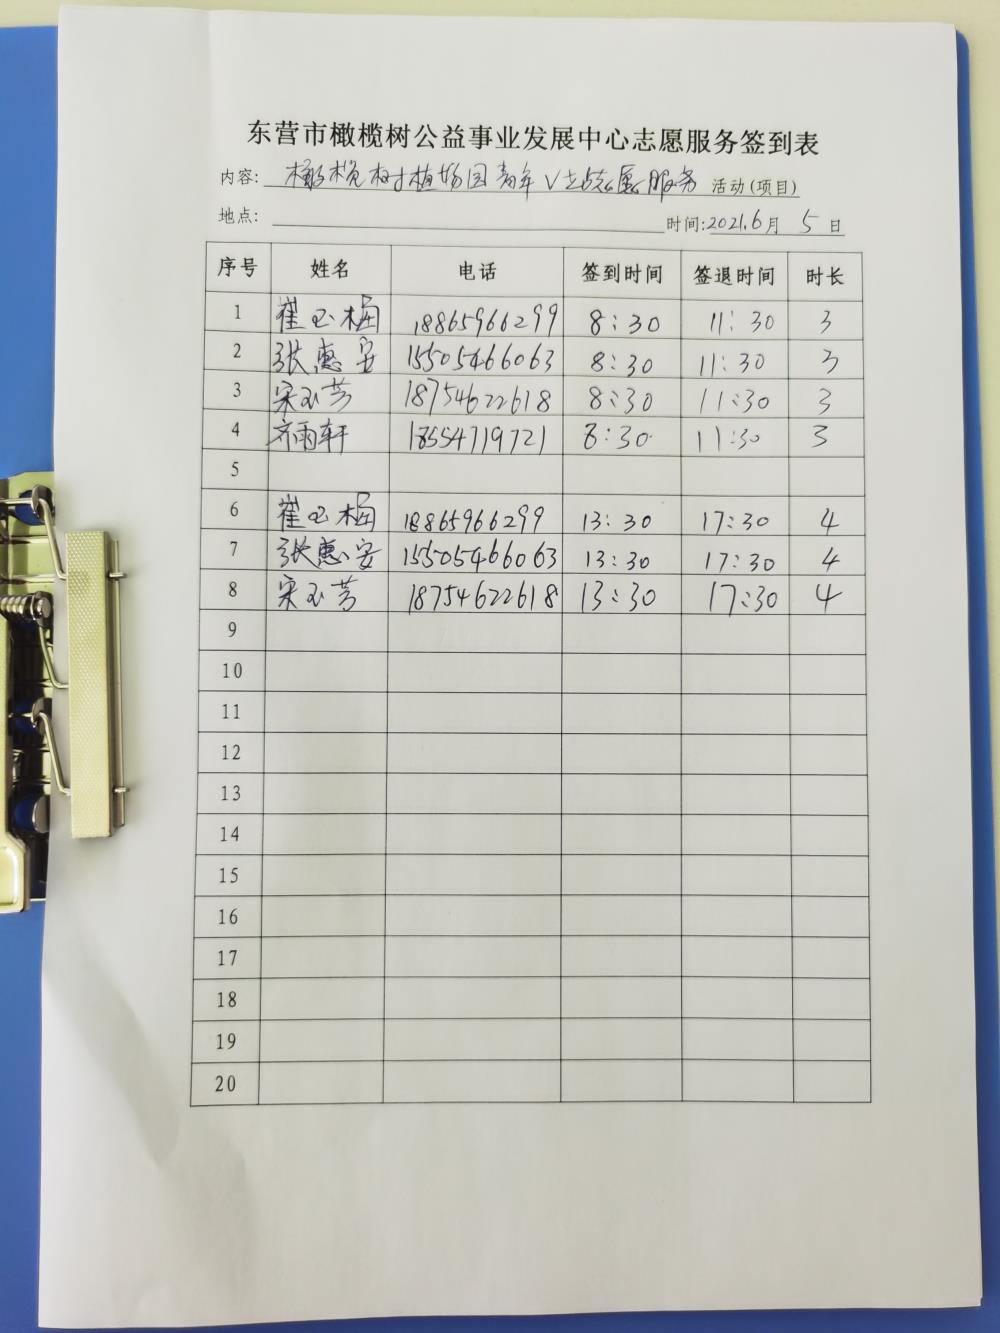 东营市橄榄树公益事业发展中心志愿服务签到表
内容: 橄榄树植物园青年V站志愿服务 活动(项目)
地点: 时间:2021.6月 5 日
序号 姓名 电话 签到时间 签退时间 时长
1 崔玉梅 18865966299 8:30 11:30 3
2 张惠安 15505466063 8:30 11:30 3
3 宋玉芳 18754622618 8:30 11:30 3
4 齐雨轩 18554719721 8:30 11:30 3
5
6 崔玉梅 18865966299 13:30 17:30 4
7 张惠安 15505466063 13:30 17:30 4
8 宋玉芳 18754622618 13:30 17:30 4
9
10
11
12
13
14
15
16
17
18
19
20